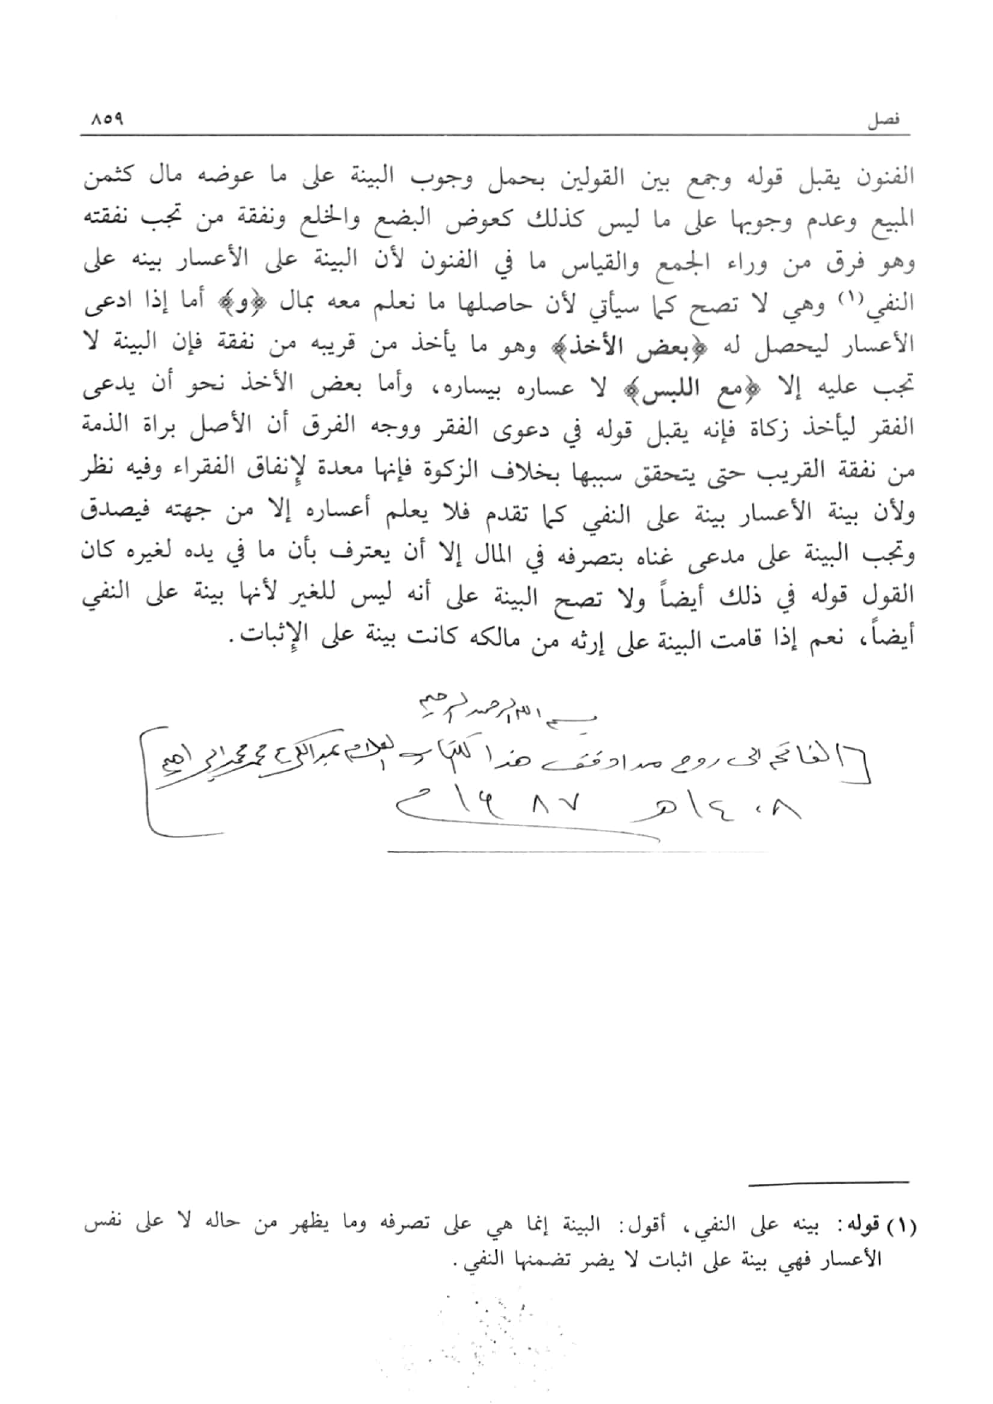 فصل
٨٥٩
الفنون يقبل قوله وجمع بين القولين بحمل وجوب البينة على ما عوضه مال كثمن
المبيع وعدم وجوبها على ما ليس كذلك كعوض البضع والخلع ونفقة من تجب نفقته
وهو فرق من وراء الجمع والقياس ما في الفنون لأن البينة على الأعسار بينه على
النفي(١) وهي لا تصح كما سيأتي لأن حاصلها ما نعلم معه بمال ﴿و﴾ أما إذا ادعى
الأعسار ليحصل له ﴿بعض الأخذ﴾ وهو ما يأخذ من قريبه من نفقة فإن البينة لا
تجب عليه إلا ﴿مع اللبس﴾ لا عساره بيساره، وأما بعض الأخذ نحو أن يدعى
الفقر ليأخذ زكاة فإنه يقبل قوله في دعوى الفقر ووجه الفرق أن الأصل براة الذمة
من نفقة القريب حتى يتحقق سببها بخلاف الزكوة فإنها معدة لإنفاق الفقراء وفيه نظر
ولأن بينة الأعسار بينة على النفي كما تقدم فلا يعلم أعساره إلا من جهته فيصدق
وتجب البينة على مدعى غناه بتصرفه في المال إلا أن يعترف بأن ما في يده لغيره كان
القول قوله في ذلك أيضاً ولا تصح البينة على أنه ليس للغير لأنها بينة على النفي
أيضاً، نعم إذا قامت البينة على إرثه من مالكه كانت بينة على الإثبات.
بسم الله الرحمن الرحيم
[الفاتحة الى روح من اوقف هذا الكتاب العلامه عبدالكريم محمد محمد ابراهيم
١٤٠٨هـ ١٩٨٧م]
(١) قوله: بينه على النفي، أقول: البينة إنما هي على تصرفه وما يظهر من حاله لا على نفس
الأعسار فهي بينة على اثبات لا يضر تضمنها النفي.